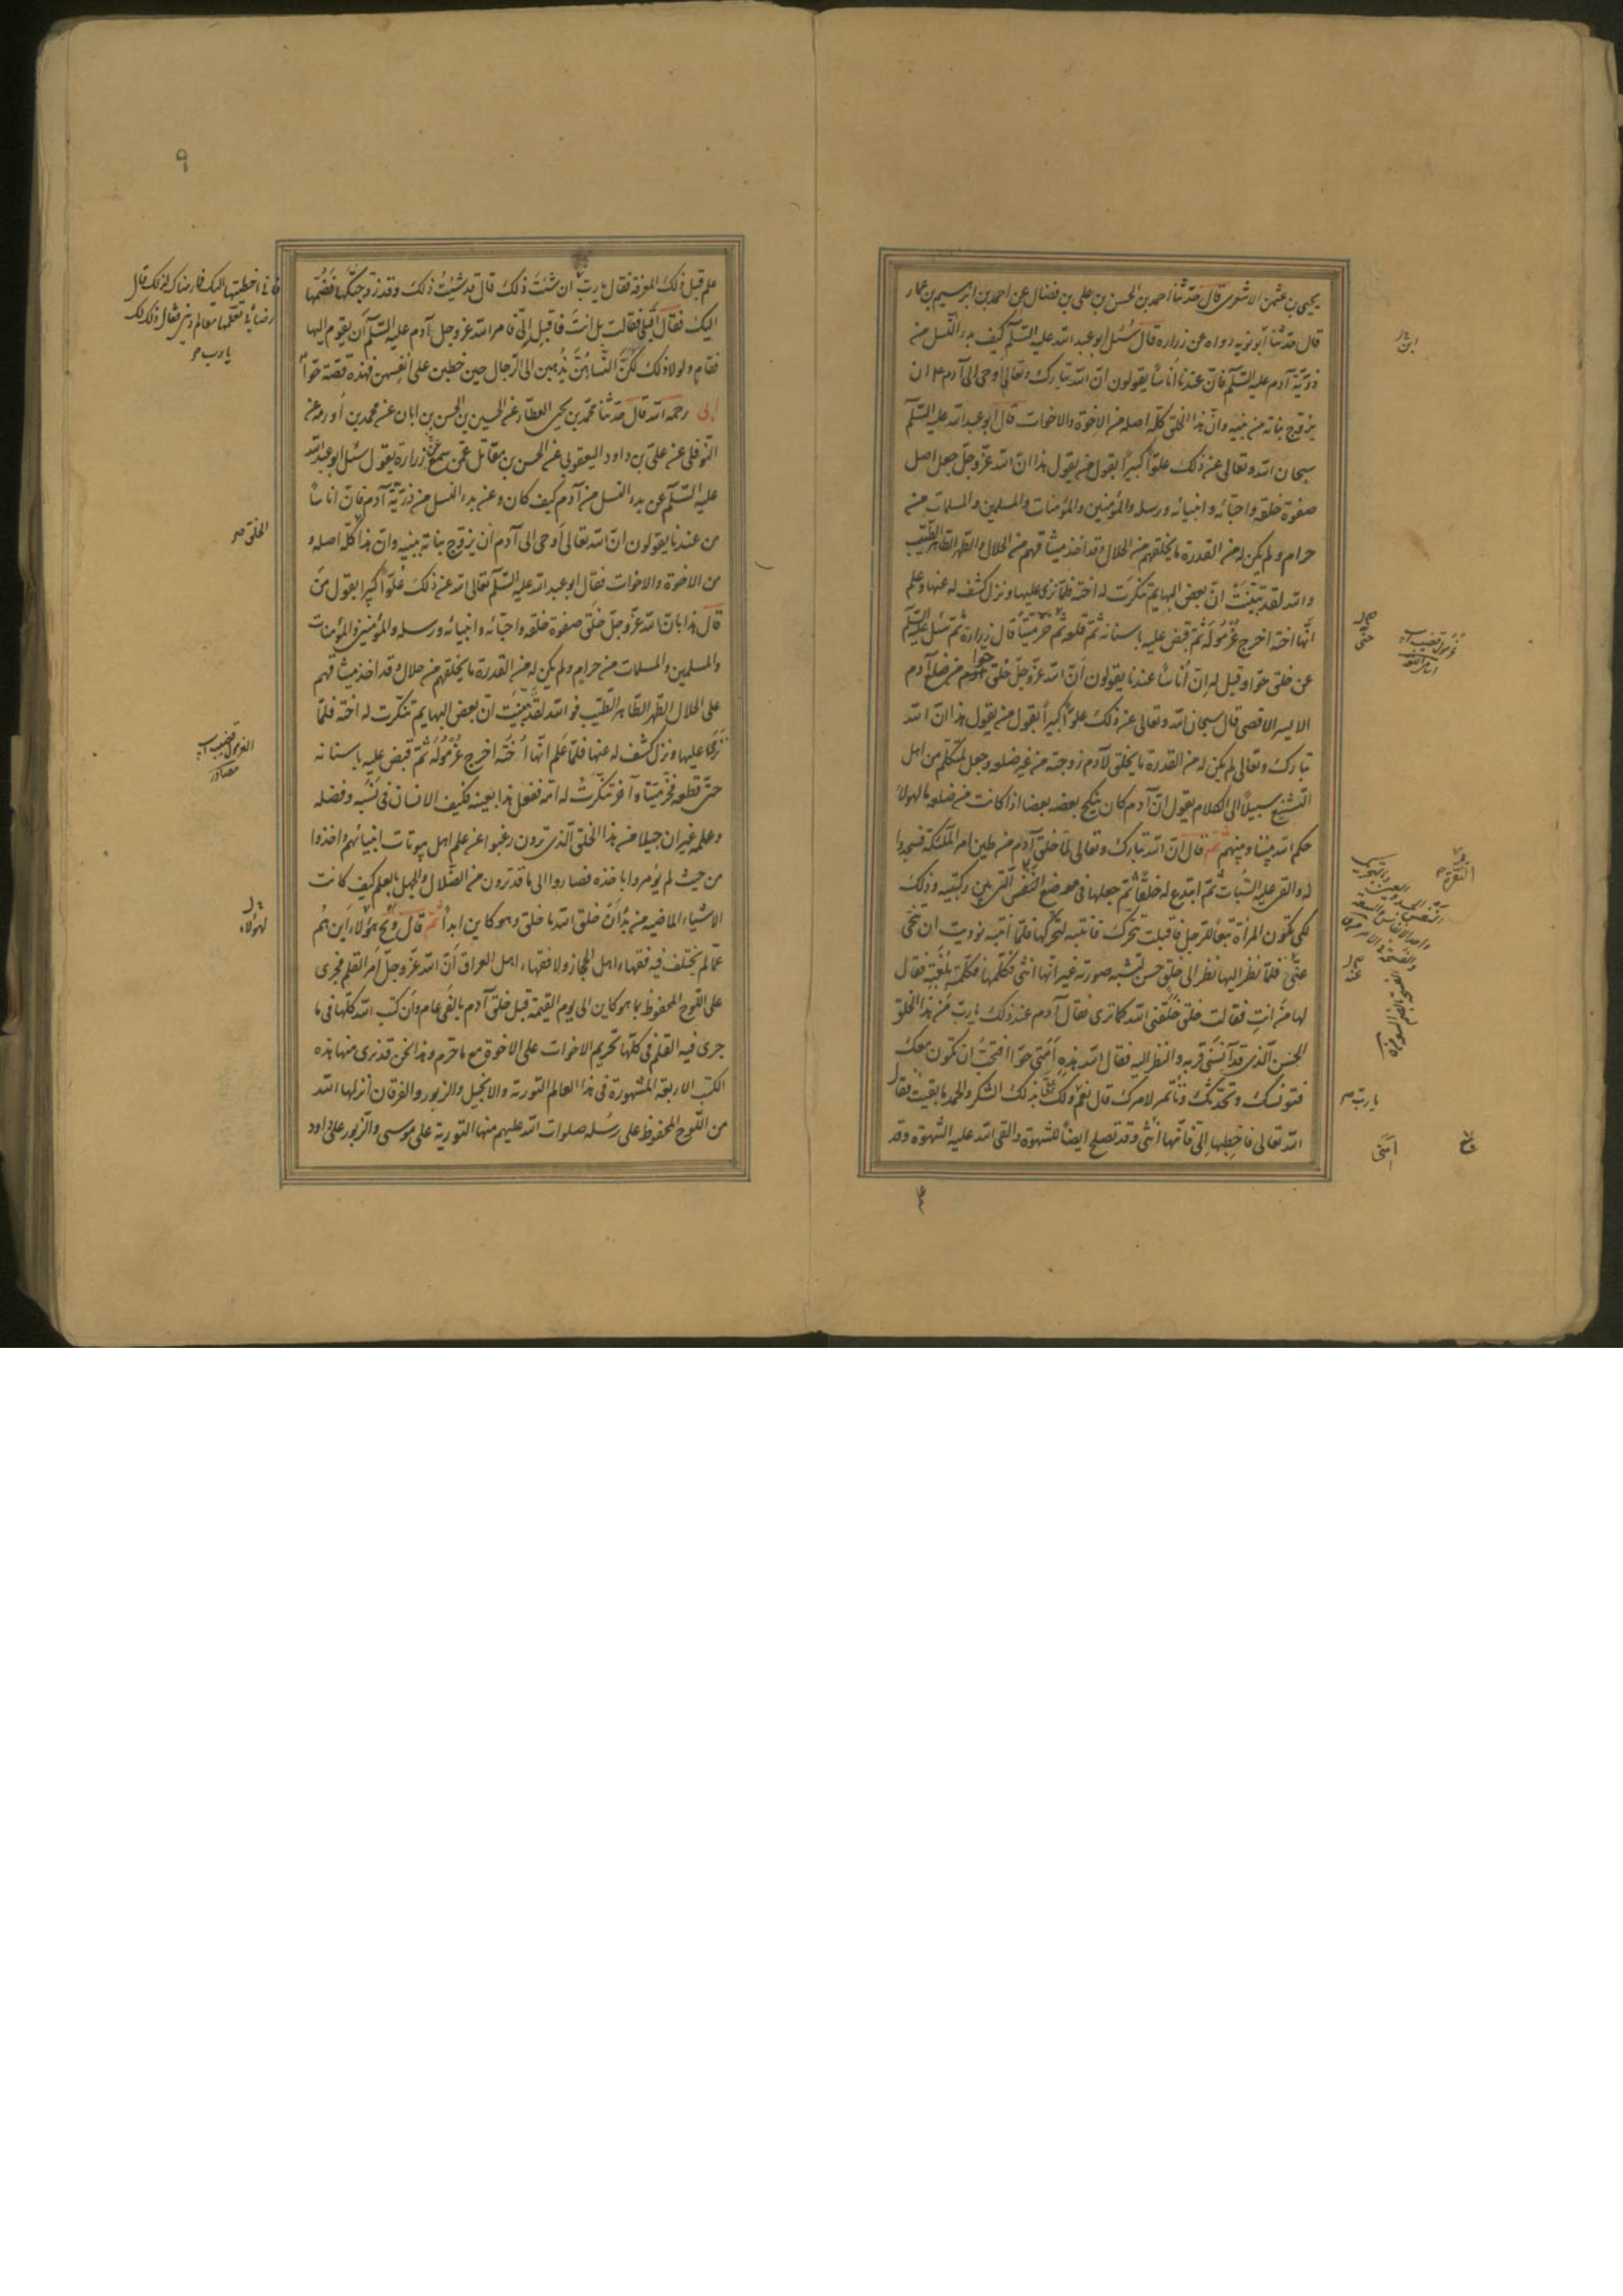 يحيى بن عثمن الاشعرى قال حدثنا احمد بن الحسن بن على بن فضال عن احمد بن ابرهيم بن عمار
قال حدثنا ابو نويه رواه عن زرارة قال سُئل ابو عبد الله عليه السّلم كيف بدء النّسل من
ذرّيّة آدم عليه السّلم فانّ عندنا اناسًا يقولون انّ الله تبارك وتعالى اوحى الى آدم ان
يزوّج بناته من بنيه وانّ هذا الخلق كلّه اصله من الاخوة والاخوات قال ابو عبد الله عليه السّلم
سبحان الله وتعالى عن ذلك علوًّا كبيرًا يقول من يقول هذا انّ الله عزّ وجلّ جعل اصل
صفوة خلقه واحبّائه وانبيائه ورسله والمؤمنين والمؤمنات والمسلمين والمسلمات من
حرام ولم يكن له من القدرة ما يخلقهم من الحلال وقد اخذ ميثاقهم من الحلال والطهر الطاهر الطّيّب
والله لقد تبيّنت انّ بعض البهايم تنكّرت له اخته فلمّا نزى عليها ونزل كشف له عنها وعلم
انّها اخته اخرج غُرمُوله ثمّ قبض عليه باسنانه ثمّ قلعه ثمّ خرّ ميّتًا قال زرارة ثمّ سئل عليه السّلم
عن خلق حوّا وقيل له انّ اُناسًا عندنا يقولون انّ الله عزّ وجلّ خلق حوّا من ضلع آدم
الايسر الاقصى قال سبحان الله وتعالى عن ذلك علوًّا كبيرًا يقول من يقول هذا انّ الله
تبارك وتعالى لم يكن له من القدرة ما يخلق لآدم زوجته من غير ضلعه وجعل لمتكلّم من اهل
التشنيع سبيلاً الى الكلام يقول انّ آدم كان ينكح بعضه بعضا اذا كانت من ضلعه ما لهولاء
حكم الله بيننا وبينهم ثم قال انّ الله تبارك وتعالى لمّا خلق آدم من طين امر الملئكة فسجدوا
له والقى عليه السُّبات ثمّ ابتدع له خلقًا ثمّ جعلها فى موضع النقرة التى بين ركبتيه وذلك
لكى تكون المرأة تبعًا للرجل فاقبلت تتحرّك فانتبه لتحرّكها فلمّا انتبه نوديت ان تنحّى
عنه فلمّا نظر اليها نظر الى خلق حسن تشبه صورته غير انّها انثى فكلّمها فكلّمته بلغته فقال
لها من انتِ فقالت خلق خلقنى الله كما ترى فقال آدم عند ذلك يا ربّ من هذا الخلق
الحسن الّذى قد آنسنى قربه والنظر اليه فقال الله هذه اَمَتى حوّا افتحبّ ان تكون معك
فتونسك وتحدّثك وتأتمر لامرك قال نعم ولك علىّ بذلك الشكر والحمد ما بقيت فقال
الله تعالى فاخطبها الىّ فانّها اَمَتى وقد تصلح ايضًا للشهوة والقى الله عليه الشهوة وقد
حتى
غرمول قضيب است
النقرة
عنه
يا ربّ
اَمَتى
٩
علم قبل ذلك المعرفة فقال يا ربّ ان شئت ذلك قال قد شئتُ ذلك وقد زوّجتكها فضُمّها
اليك فقال اقبلى فقالت بل انت فاقبل الىّ فامر الله عز وجل آدم عليه السّلم ان يقوم اليها
فقام ولولا ذلك لكنّ النساء هنّ يذهبن الى الرّجال حين خطبن على انفسهن فهذه قصة حوّا
ابى رحمه الله قال حدثنا محمّد بن يحيى العطّار عن الحسين بن الحسن بن ابان عن محمد بن اُورمه عن
النوفلى عن علىّ بن داود اليعقوبى عن الحسن بن مقاتل عمّن سمع زرارة يقول سئل ابو عبد الله
عليه السّلم عن بدء النسل من آدم كيف كان وعن بدء النسل من ذريّة آدم فانّ اناسًا
من عندنا يقولون انّ الله تعالى اوحى الى آدم ان يزوج بناته ببنيه وانّ هذا كلّه اصله
من الاخوة والاخوات فقال ابو عبد الله عليه السّلم تعالى الله عن ذلك علوّا كبيرا يقول من
قال هذا بانّ الله عزّ وجلّ خلق صفوة خلقه واحبّائه وانبيائه ورسله والمؤمنين والمؤمنات
والمسلمين والمسلمات من حرام ولم يكن له من القدرة ما يخلقهم من حلال وقد اخذ ميثاقهم
على الحلال الطهر الطاهر الطّيّب فوالله لقد تبيّنت انّ بعض البهايم تنكرت له اخته فلمّا
نزى عليها ونزل كشف له عنها فلمّا علم انّها اُخته اخرج غُرمُوله ثمّ قبض عليه باسنانه
حتى قطعه فخرّ ميّتا وآخر تنكّرت له امّه ففعل هذا بعينه فكيف الانسان فى نسبه وفضله
وعلمه غير ان جيلا من هذا الخلق الّذى ترون رغبوا عن علم اهل بيوتات انبيائهم واخذوا
من حيث لم يؤمروا باخذه فصاروا الى ما قد ترون من الضّلال والجهل بالعلم كيف كانت
الاشياء الماضية من بدء ان خلق الله ما خلق وما هو كاين ابداً ثم قال ويح هؤلاء اين هم
عمّا لم يختلف فيه فقهاء اهل الحجاز ولا فقهاء اهل العراق انّ الله عزّ وجلّ امر القلم فجرى
على اللّوح المحفوظ بما هو كاين الى يوم القيمة قبل خلق آدم بالفى عام وان كتب الله كلّها فى ما
جرى فيه القلم فى كلّها تحريم الاخوات على الاخوة مع ما حرّم وهذا نحن قد نرى منها هذه
الكتب الاربعة المشهورة فى هذا العالم التورية والانجيل والزبور والفرقان انزلها الله
من اللّوح المحفوظ على رسُله صلوات الله عليهم منها التورية على موسى والزّبور على داود
فانى اخطبها اليك فما رضاك لذلك قال
رضائى ان تعلّمها معالم دينى فقال ذلك لك
يا رب
الخلق
الغرمول قضيب است
مصادر
لهولاء